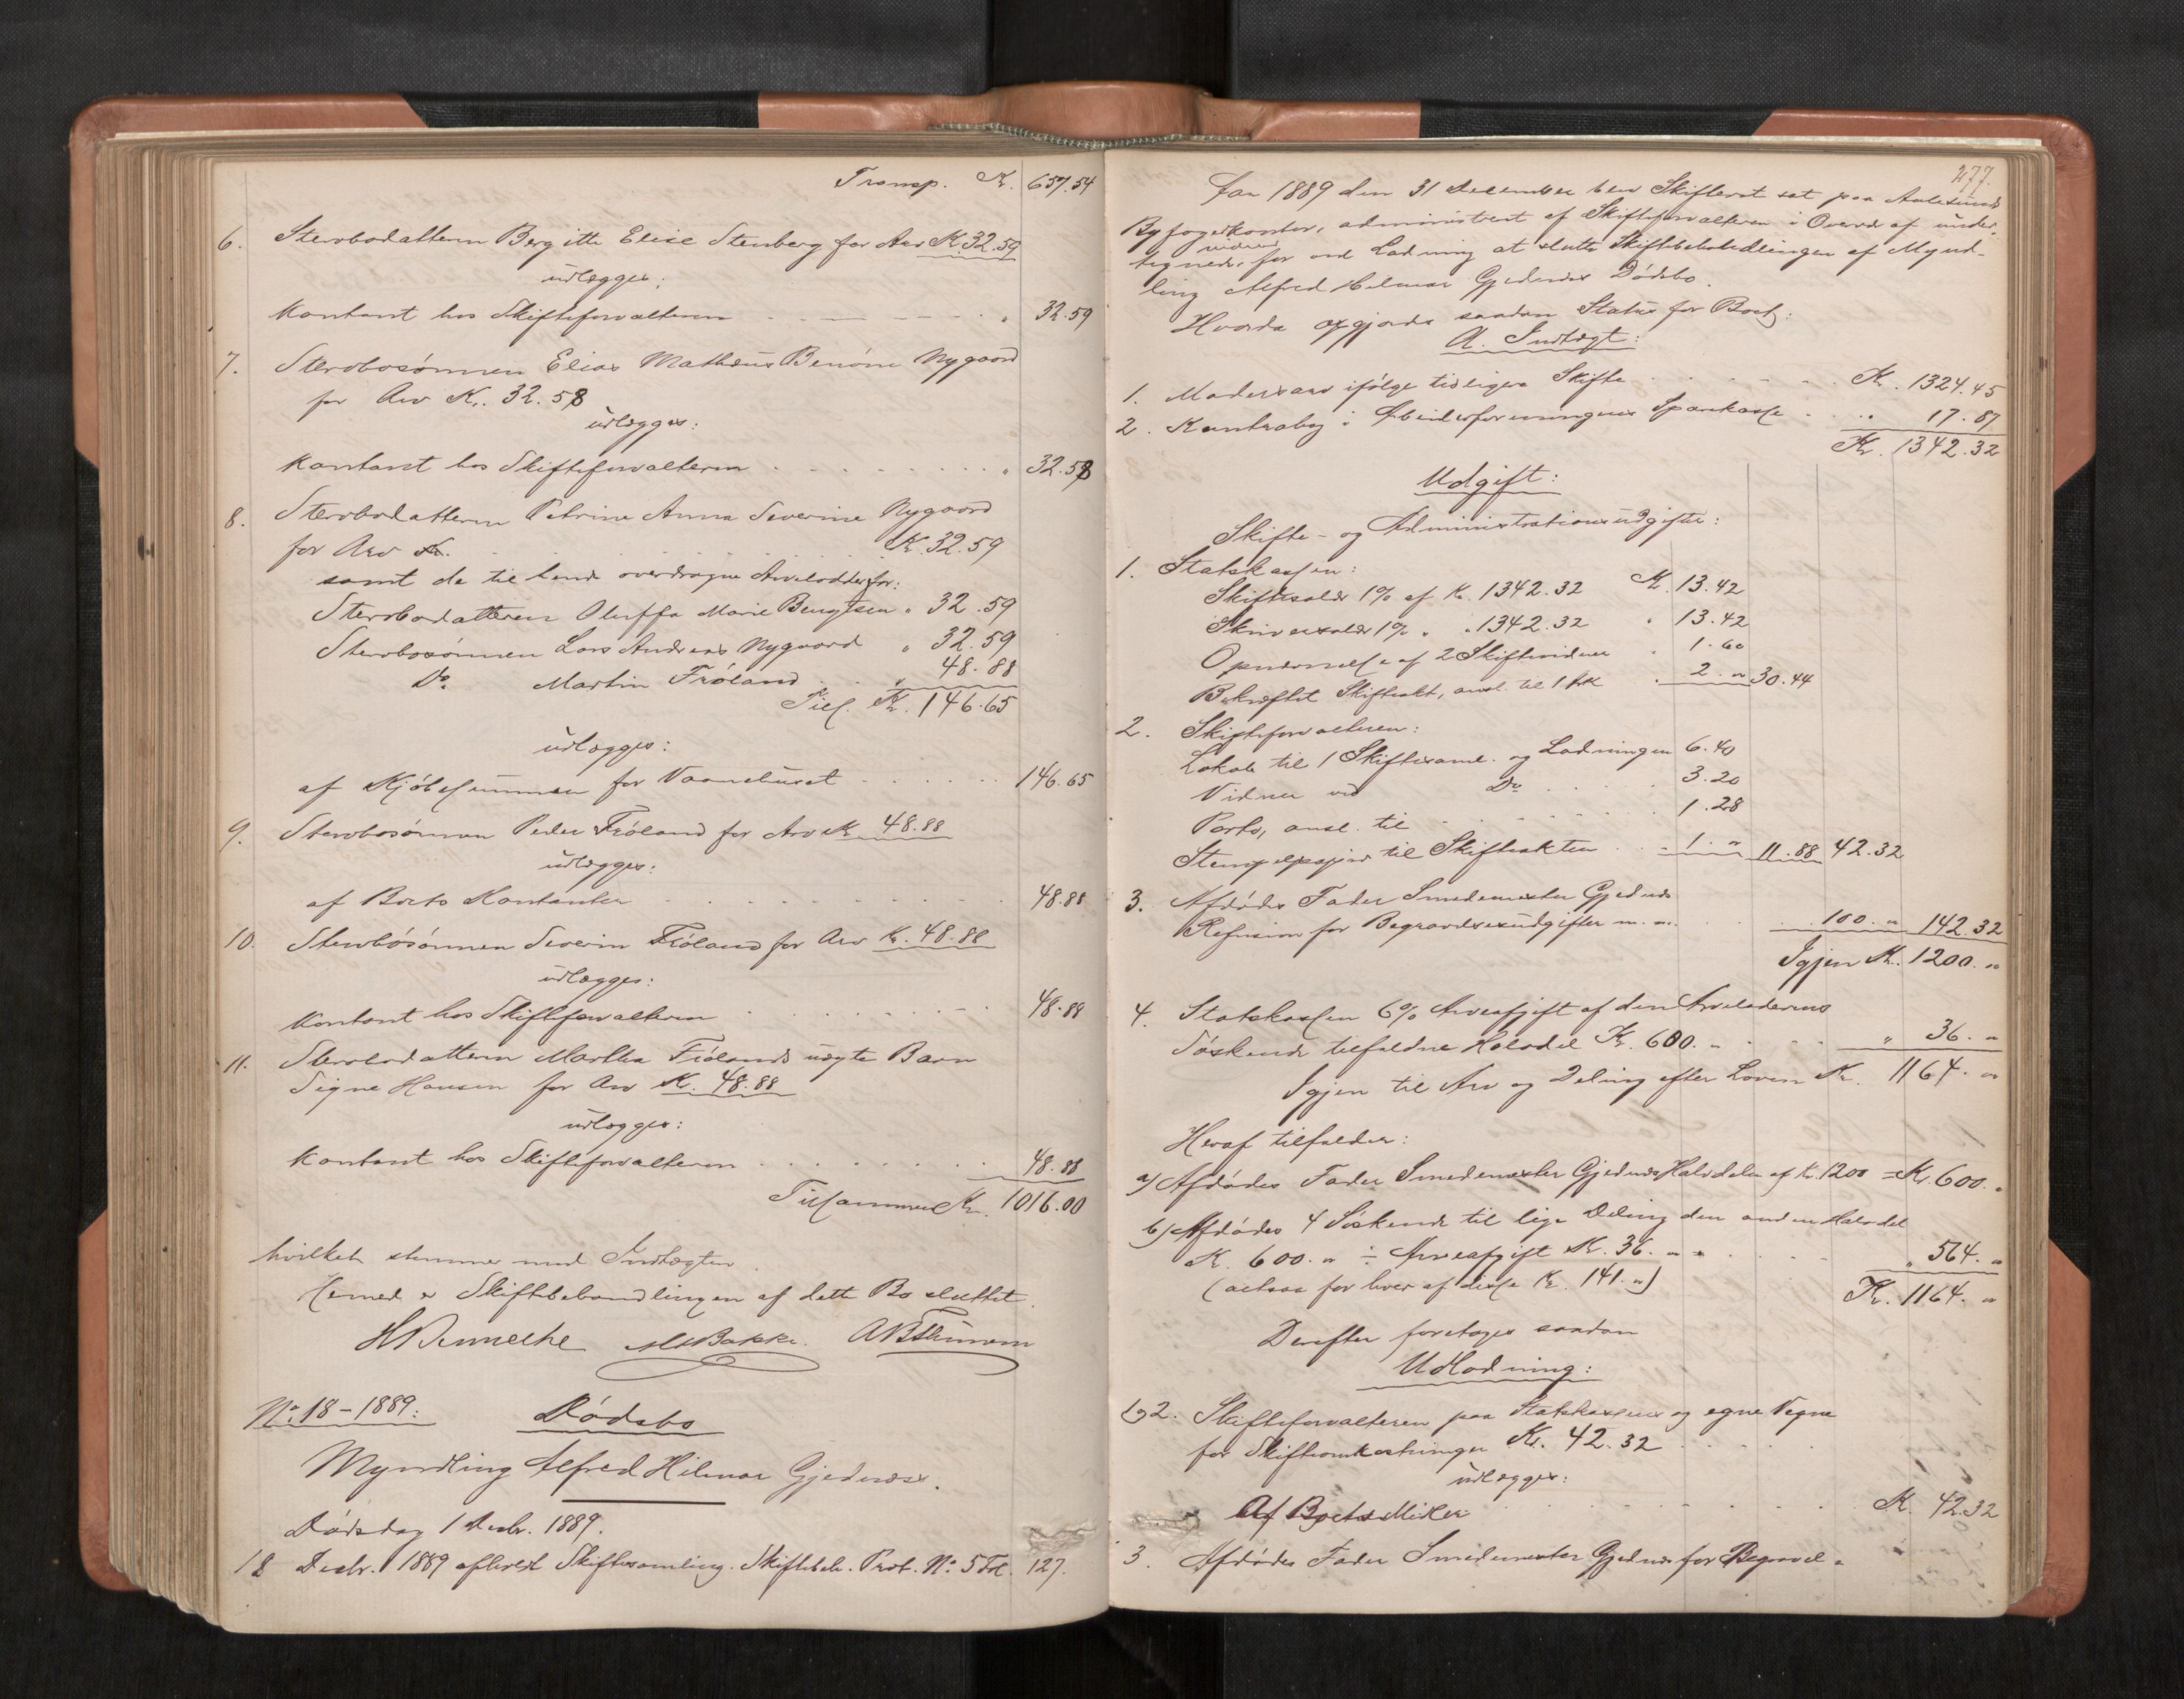 Transp. Kr. 657.54
6. Stervbodatteren Bergitte Elise Stenberg for Arv Kr. 32.59
udlægges:
Kontant hos Skifteforvalteren " 32.59
7. Stervbosønnen Elias Mathæus Benoni Nygaard
for Arv Kr. 32.58
udlægges:
Kontant hos Skifteforvalteren " 32.58
8. Stervbodatteren Petrine Anna Severine Nygaard
for Arv Kr. Kr. 32.59
samt de til hende overdragne Arvelodder for:
Stervbodatteren Oluffa Marie Bengtsen " 32.59
Stervbosønnen Lars Andreas Nygaard " 32.59
Do. Martin Fröland " 48.88
Tils. Kr. 146.65
udlægges:
af Kjöbesummen for Vaanehuset 146.65
9. Stervbosønnen Peder Fröland for Arv Kr. 48.88
udlægges:
af Boets Kontanter 48.88
10. Stervbosønnen Severin Fröland for Arv Kr. 48.88
udlægges:
Kontant hos Skifteforvalteren 48.88
11. Stervbodatteren Martha Frölands uægte Barn
Signe Hansen for Arv Kr. 48.88
udlægges:
Kontant hos Skifteforvalteren 48.88
Tilsammen Kr. 1016.00
hvilket stemmer med Indtægten.
Hermed er Skiftebehandlingen af dette Bo sluttet.
No. 18 - 1889: Dødsbo
Myndling Alfred Hilmar Gjednæs.
Dødsdag 1 Decbr. 1889.
18 Decbr. 1889 afholdt Skiftesamling. Skiftebeh. Prot. No. 5 Fol. 127.
477.
Aar 1889 den 31 December blev Skifteret sat paa Aalesunds
Byfogedkontor, administreret af Skifteforvalteren i Overvær af under-
tegnede Vidner for ved Lodning at slutte Skiftebehandlingen af Mynd-
ling Alfred Hilmar Gjednæs Dødsbo.
Hvorda opgjordes saadan Status for Boet:
A. Indtægt:
1. Modersarv ifølge tidligere Skifte Kr. 1324.45
2. Kontrabog i Arbeiderforeningens Sparekasse " 17.87
Kr. 1342.32
Udgift:
Skifte- og Administrationsudgifter:
1. Statskassen:
Skiftesalær 1% af Kr. 1342.32 Kr. 13.42
Skriversalær 1% " " 1342.32 " 13.42
Opnævnelse af 2 Skiftevidner " 1.60
Bekræftet Skifteakt, ansl. til 1 Ark " 2. " 30.44
2. Skifteforvalteren:
Lokale til 1 Skiftesaml. og Lodningen 6.40
Vidner ved Do. 3.20
Porto, ansl. til 1.28
Stempelpapir til Skifteakten 1. " 11.88 42.32
3. Afdødes Fader Smedemester Gjednæs
Refusion for Begravelsesudgifter m.m. 100. " 142.32
Igjen Kr. 1200. "
4. Statskassen 6% Arveafgift af den Arveladerens
Søskende tilfaldne Halvdel Kr. 600. " " 36. "
Igjen til Arv og Deling efter Loven Kr. 1164. "
Heraf tilfalder:
a) Afdødes Fader Smedemester Gjednæs Halvdelen af Kr. 1200 = Kr. 600. "
b) Afdødes 4 Søskende til lige Deling den anden Halvdel
Kr. 600. " ÷ Arveafgift Kr. 36. " = " 564. "
(altsaa for hver af disse Kr. 141. ") Kr. 1164. "
Derefter foretoges saadan
Udlodning:
1 og 2. Skifteforvalteren paa Statskassens og egne Vegne
for Skifteomkostninger Kr. 42.32
udlægges:
Af Boets Midler Kr. 42.32
3. Afdødes Fader Smedemester Gjednæs for Begravel-